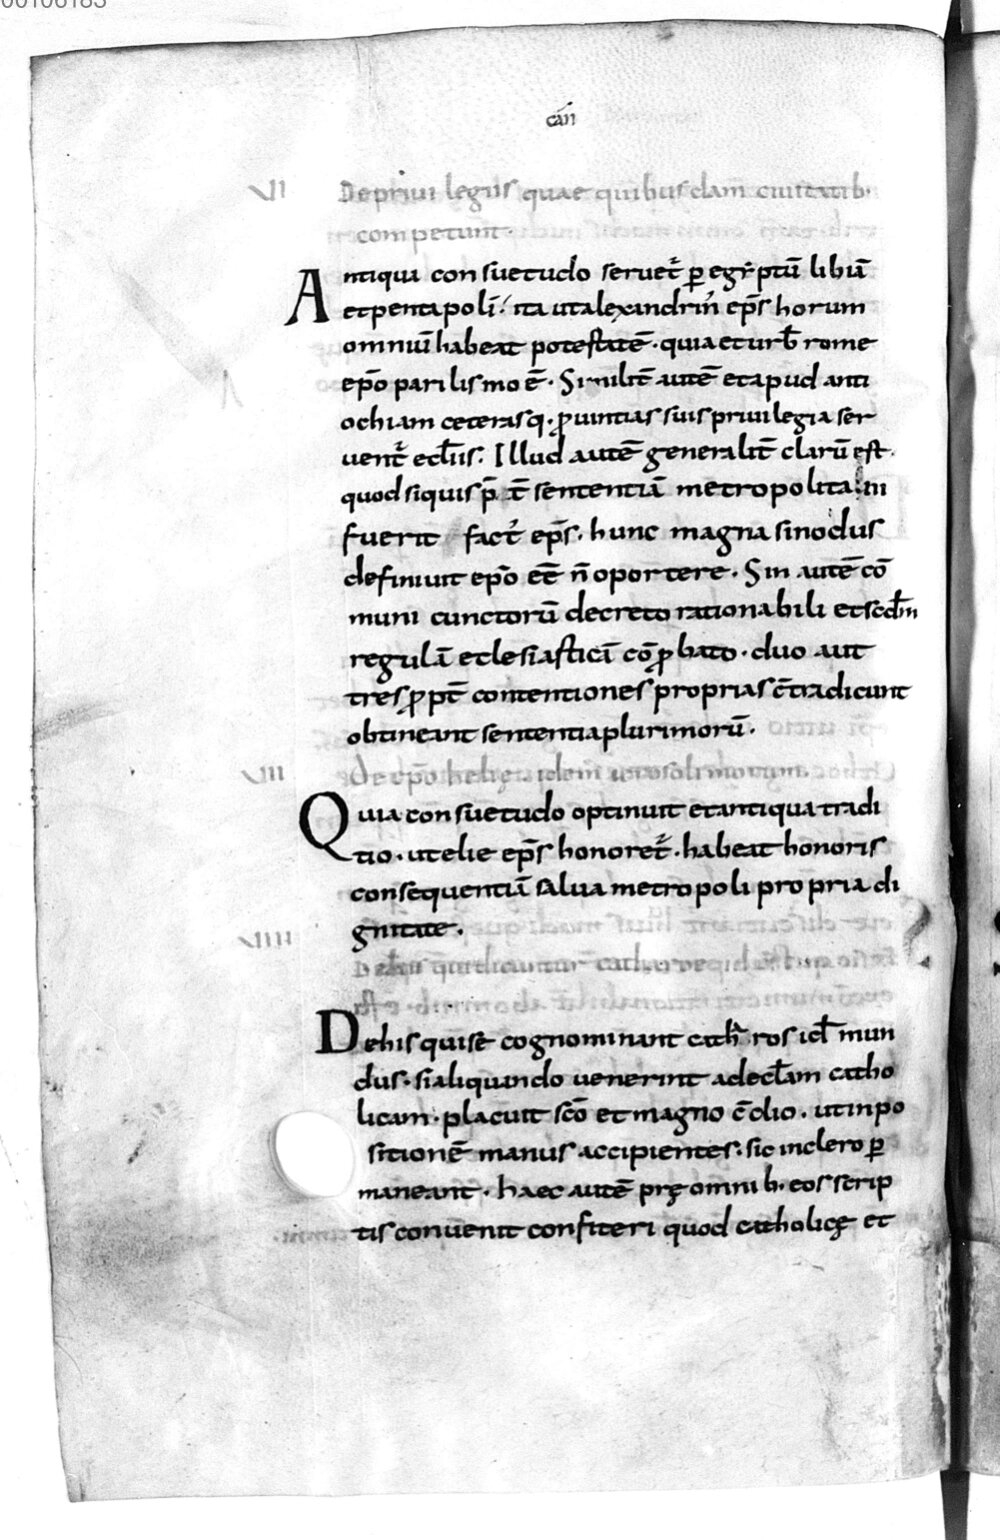 cañ
VII Depriui legiis quae quibusdam̄ ciuitatib·
competunt·
Antiqua consuetudo seruet᷑ ꝑ egyptū libiā
etpentapoli᷑· ita utalexandrin᷑ ep̄s horum
omniū habeat potestatē· quia eturb̄ rome
ep̄o parilismo ē· Similit̄ autē etapud anti
ochiam ceterasq· ꝓuintias suis priuilegia ser
uent᷑ eccłiis· Illud autē generalit̄ clarū est·
quod siquis p̄t̄ sententiā metropolitani
fuerit fact᷑ ep̄s· hunc magna sinodus
definiuit ep̄o eē n̄ oportere· Sin autē cō
muni cunctorū decreto rationabili etscdm̄
regulā eclesiasticā cōꝓbato· duo aut
tres ꝓpt̄ contentiones proprias c̄tradicunt
obtineant sententia plurimorū·
VIII de ep̄o helię idem
Quia consuetudo optinuit etantiqua tradi
tio· utelie ep̄s honoret᷑· habeat honoris
consequentiā salua metropoli propria di
gnitate·
VIIII
Dehis quise cognominant cath᷑ros id̄ mun
dus· sialiquando uenerint adeccłam catho
licam· placuit scō et magno c̄cilio· utinpo
sitionē manus accipientes· sic inclero ꝑ
maneant· haec autē pre omnib· eos scrip
tis conuenit confiteri quod catholicę et